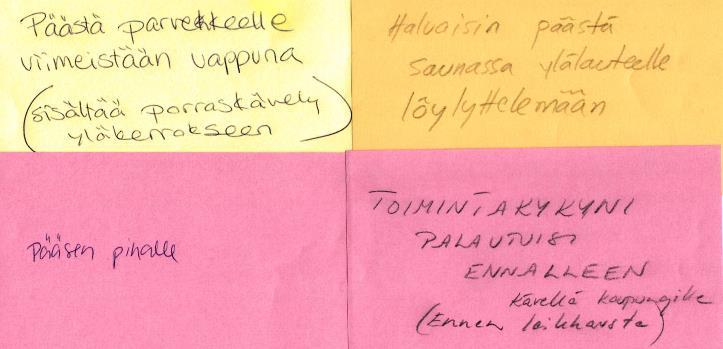 Päästä parvekkeelle
viimeistään vappuna
(sisältää porraskävely
yläkerrokseen)
Haluaisin päästä
saunassa ylälauteelle
löylyttelemään
Pääsen pihalle
TOIMINTAKYKYNI
PALAUTUISI
ENNALLEEN
Kävellä kaupungille
(Ennen leikkausta)